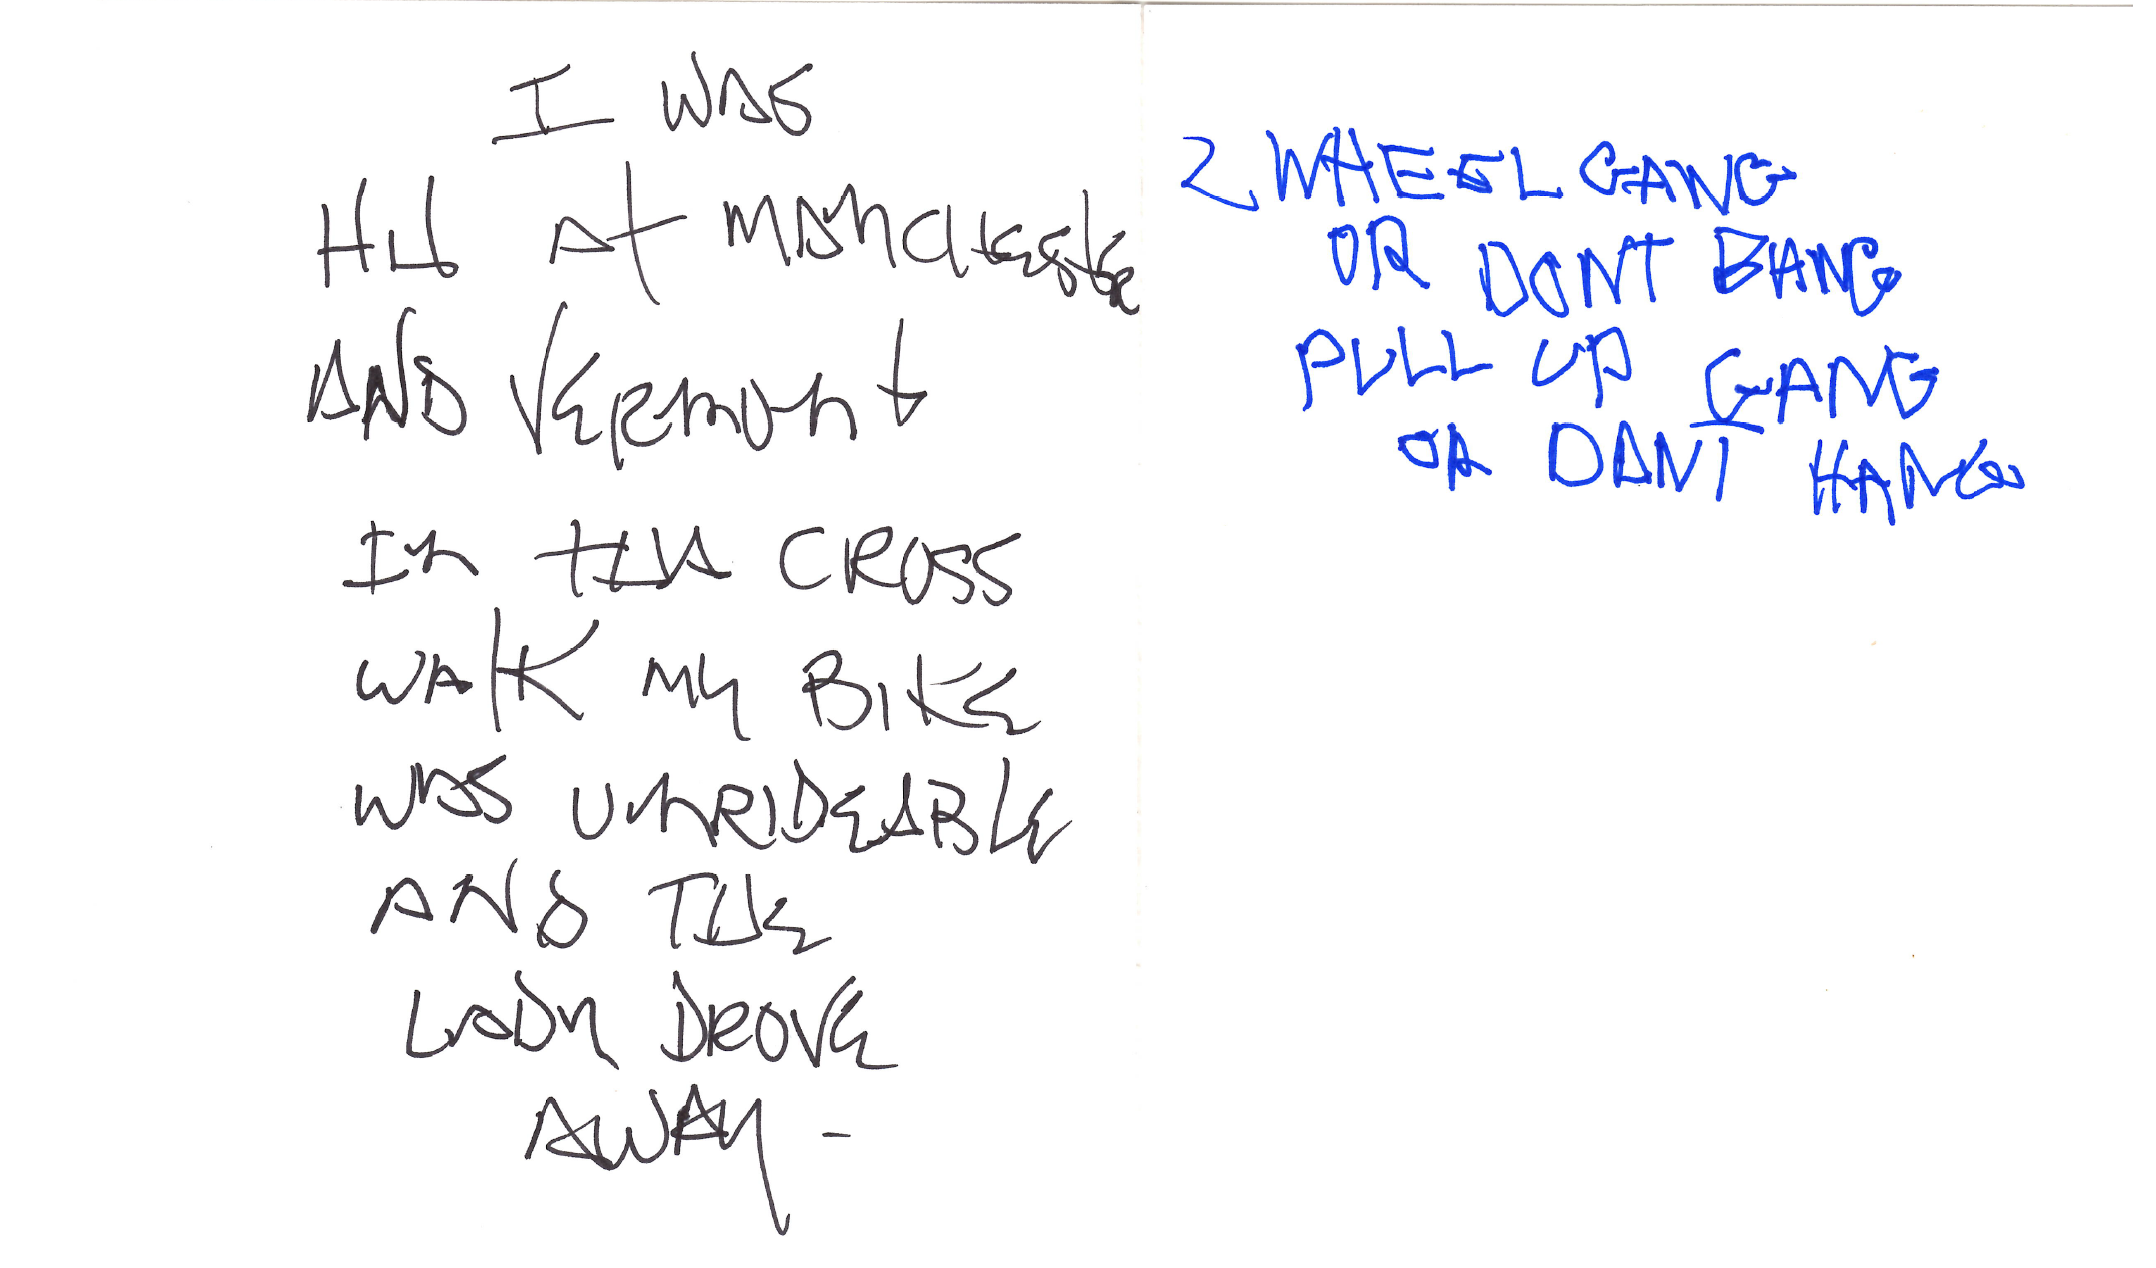 I WAS
Hit At MANChester
AND VERMONT
IN the CROSS
WAlK MY BIKE
WAS UNRIDEABLE
AND THE
LADY DROVE
AWAY -
2 WHEEL GANG
OR DONT BANG
PULL UP GANG
OR DONT HANG